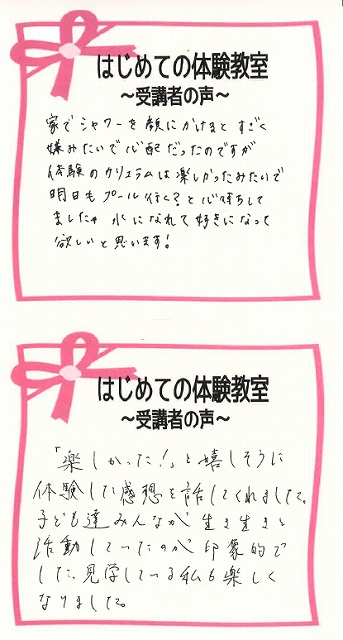 はじめての体験教室
～受講者の声～
家でシャワーを顔にかけるとすごく
嫌みたいで心配だったのですが
体験のカリキュラムは楽しかったみたいで
明日もプール行く?と心待ちして
ました 水になれて好きになって
欲しいと思います!
はじめての体験教室
～受講者の声～
「楽しかった!」と嬉しそうに
体験した感想を話してくれました。
子ども達みんなが生き生きと
活動していたのが印象的で
した。見学している私も楽しく
なりました。